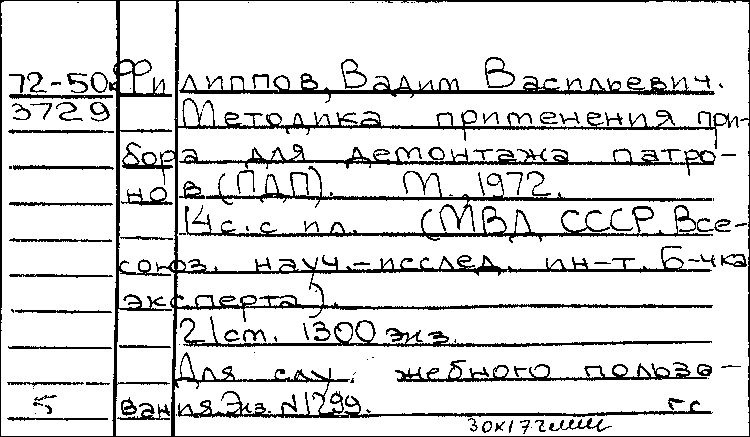 72-50. Филиппов, Вадим Васильевич.
3729 Методика применения при-
бора для демонтажа патро-
нов (ПДП). М., 1972.
14 с. с ил. (МВД СССР. Все-
союз. науч.-исслед. ин-т. Б-чка
эксперта).
21 см. 1300 экз.
Для слу жебного пользо-
5 вания. Экз. №1299. гс
30х172мм